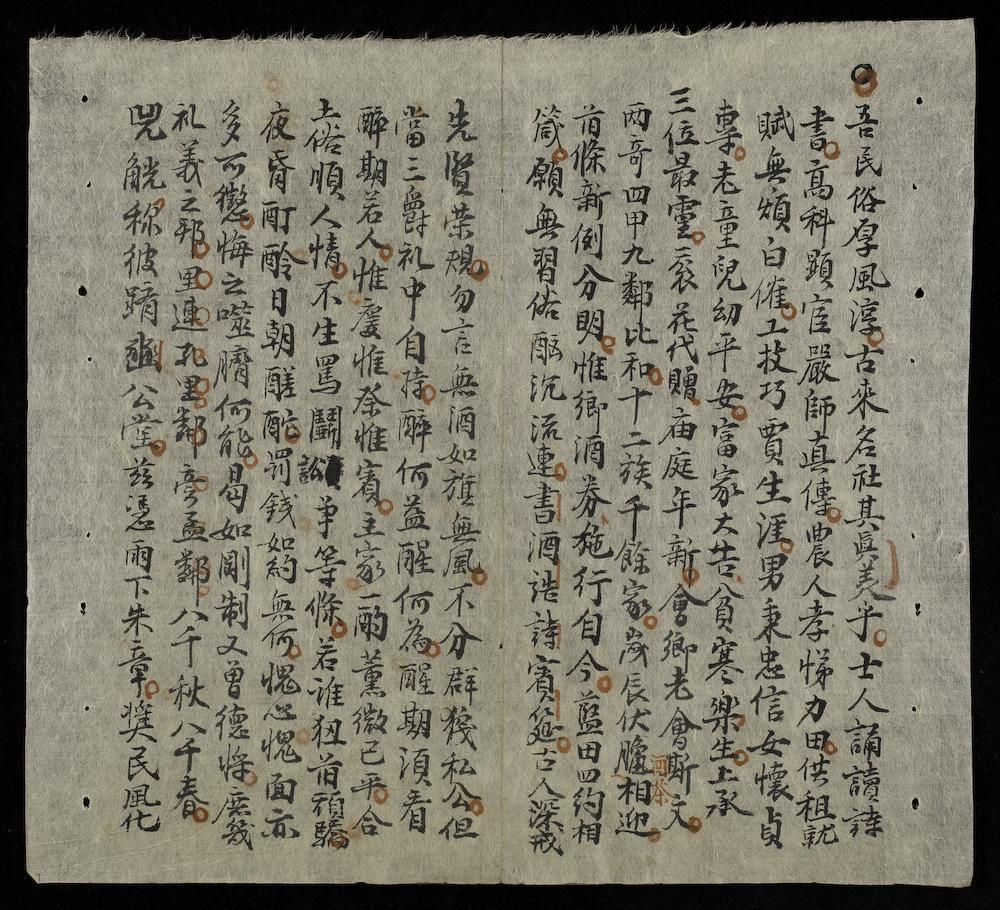 吾民俗厚風淳古來名社其真美乎士人誦讀詩
書高科顯宦嚴師真傳農人孝悌力田供租就
賦無煩白催工技巧賈生涯男秉忠信女懷貞
專老童兒幼平安富家大吉貧寒樂生上承
三位最靈衮花代贈庙庭年新會鄉老會斯文
两奇四甲九鄰比和十二族千餘家歲辰伏臘相迎
首條新例分明惟鄉酒券施行自今藍田四約相
箴願無習俗酗沉流連書酒誥詩賓筵古人深戒
先賢荣規勿言無酒如旗無風不分群殘私公但
當三爵礼中自持醉何益醒何為醒期須看
醉期若人惟慶惟祭惟賓主家一酌薰微已平合
土俗順人情不生罵鬪訟爭等條若誰狃前頑驕
夜昏酊酩日朝醒酡罰錢如約無何愧心愧面亦
多可懲悔之噬臍何能曷如剛制又曽德将庶幾
礼義之邦里連孔里鄰旁孟鄰八千秋八千春
兕觥称彼躋豳公堂茲憑雨下朱章奬民風化
河茶